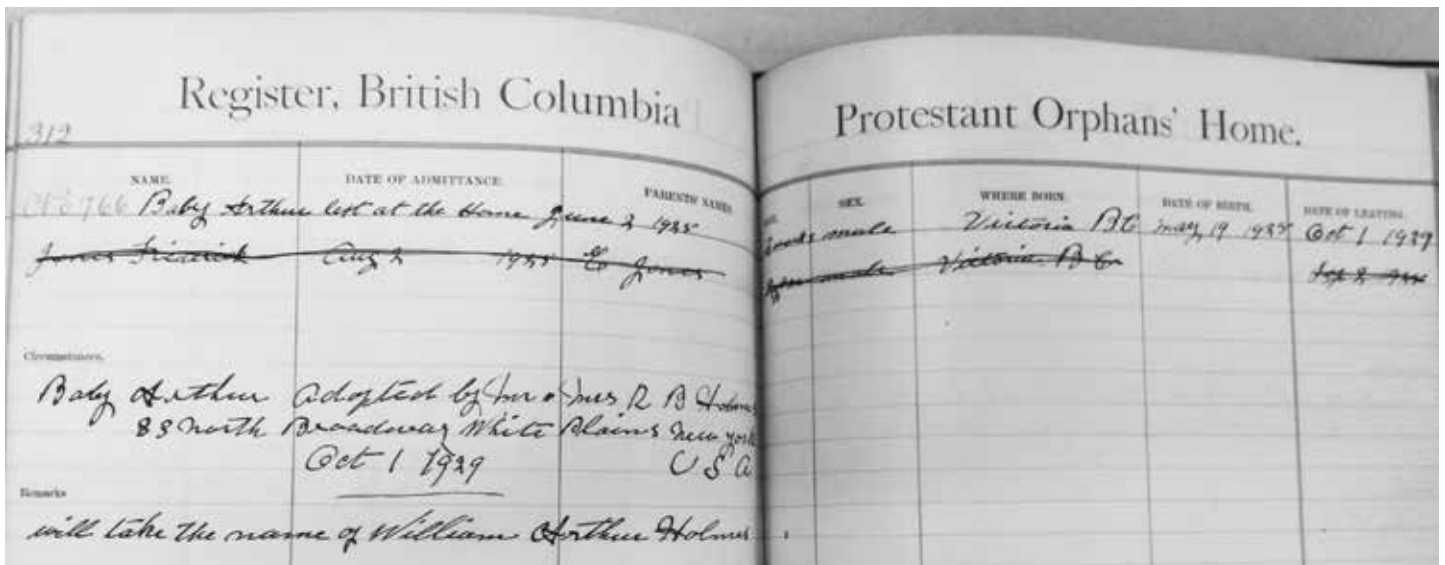 Register, British Columbia Protestant Orphans' Home.
312
NAME. DATE OF ADMITTANCE. PARENTS' NAMES SEX. WHERE BORN. DATE OF BIRTH. DATE OF LEAVING.
766 Baby Arthur left at the Home June 2 male Victoria BC May 19 Oct 1 1929
Jones Aug 2 Jones male Victoria B C
Circumstances.
Baby Arthur adopted by Mr & Mrs R B Holmes
88 North Broadway White Plains New York
Oct 1 1929 U S A
Remarks
will take the name of William Arthur Holmes